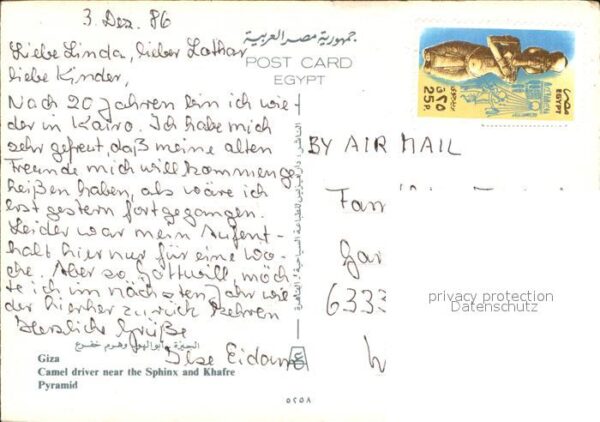 3. Dez. 86
Liebe Linda, lieber Lothar,
liebe Kinder,
Nach 20 Jahren bin ich wie-
der in Kairo. Ich habe mich
sehr gefreut, daß meine alten
Freunde mich willkommen ge-
heißen haben, als wäre ich
erst gestern fortgegangen.
Leider war mein Aufent-
halt hier nur für eine Wo-
che. Aber so Gott will, möch
te ich im nächsten Jahr wie
der hierher zurück kehren
Herzliche Grüße
Ilse
جمهورية مصر العربية
POST CARD
EGYPT
مصر
EGYPT
25 P.
٢٥ ق
BY AIR MAIL
Fam
Gar
6333
privacy protection
Datenschutz
الجيزة - أبو الهول وهرم خفرع
Giza
Camel driver near the Sphinx and Khafre
Pyramid
٥٢٥٨